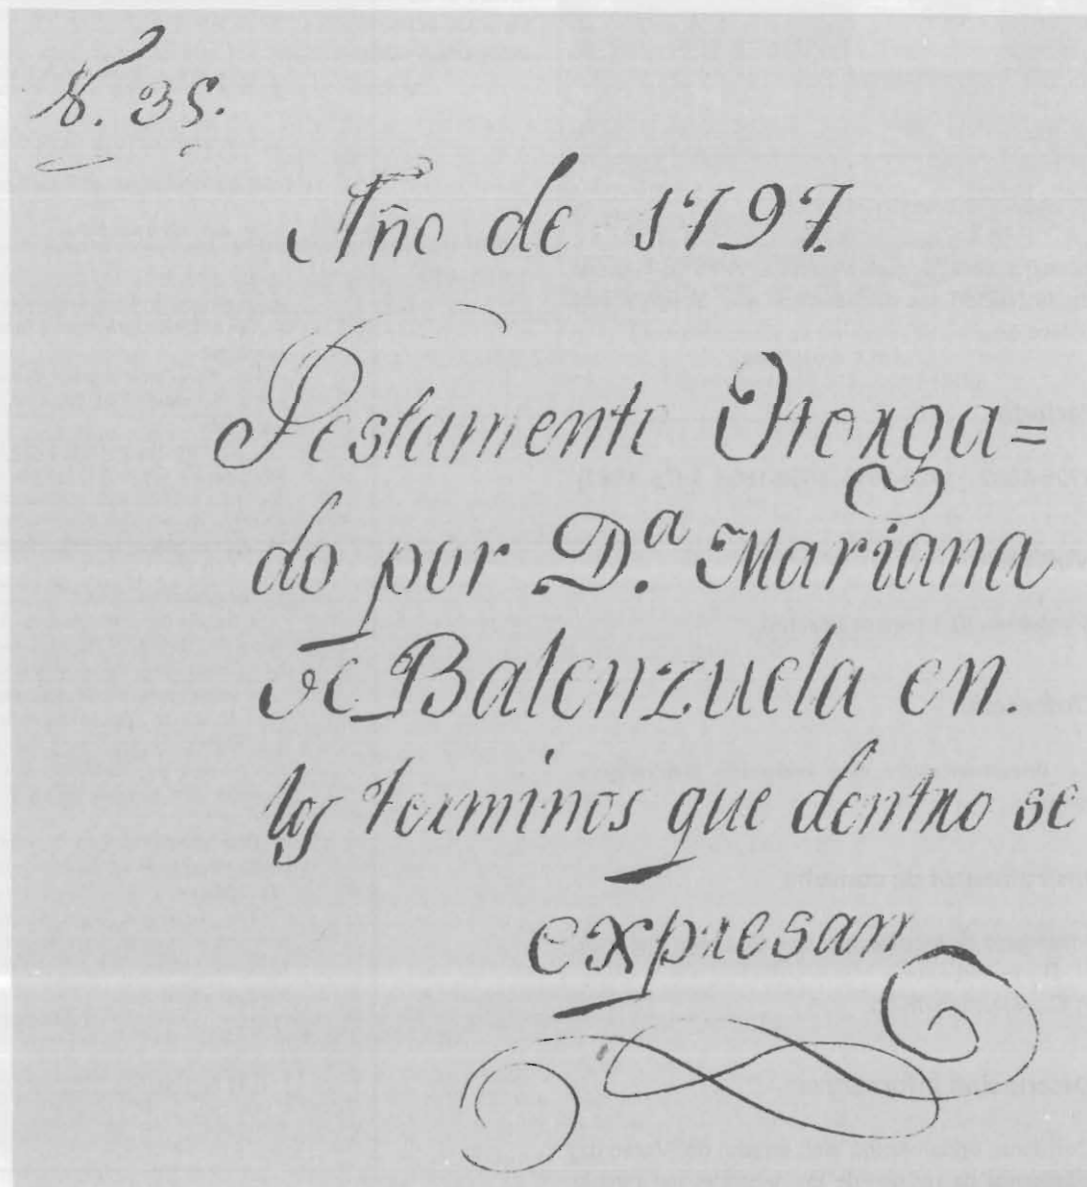 N. 35.
Año de 1797.
Testamento Otorga=
do por D.ª Mariana
de Balenzuela en.
los terminos que dentro se
expresan